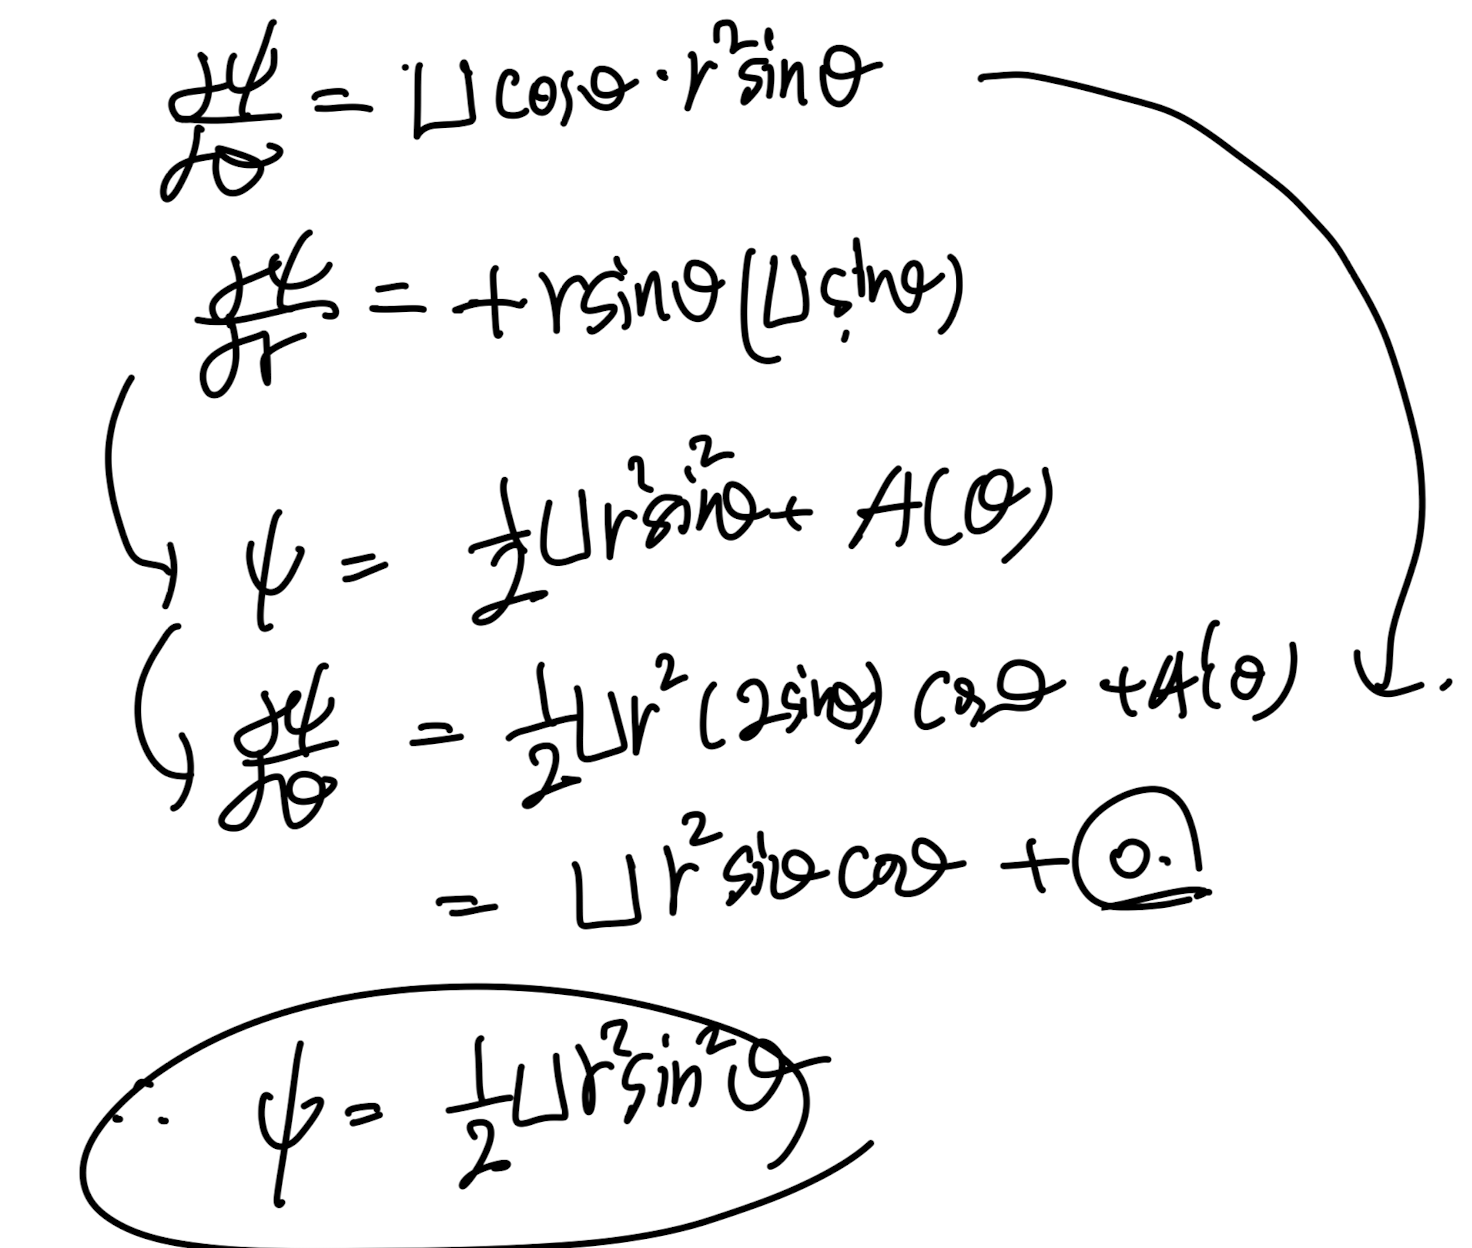 ∂ψ/∂θ = U cosθ · r² sinθ
∂ψ/∂r = + r sinθ (U sinθ)
ψ = 1/2 U r² sin²θ + A(θ)
∂ψ/∂θ = 1/2 U r² (2 sinθ) cosθ + A'(θ)
= U r² sinθ cosθ + 0.
∴ ψ = 1/2 U r² sin²θ